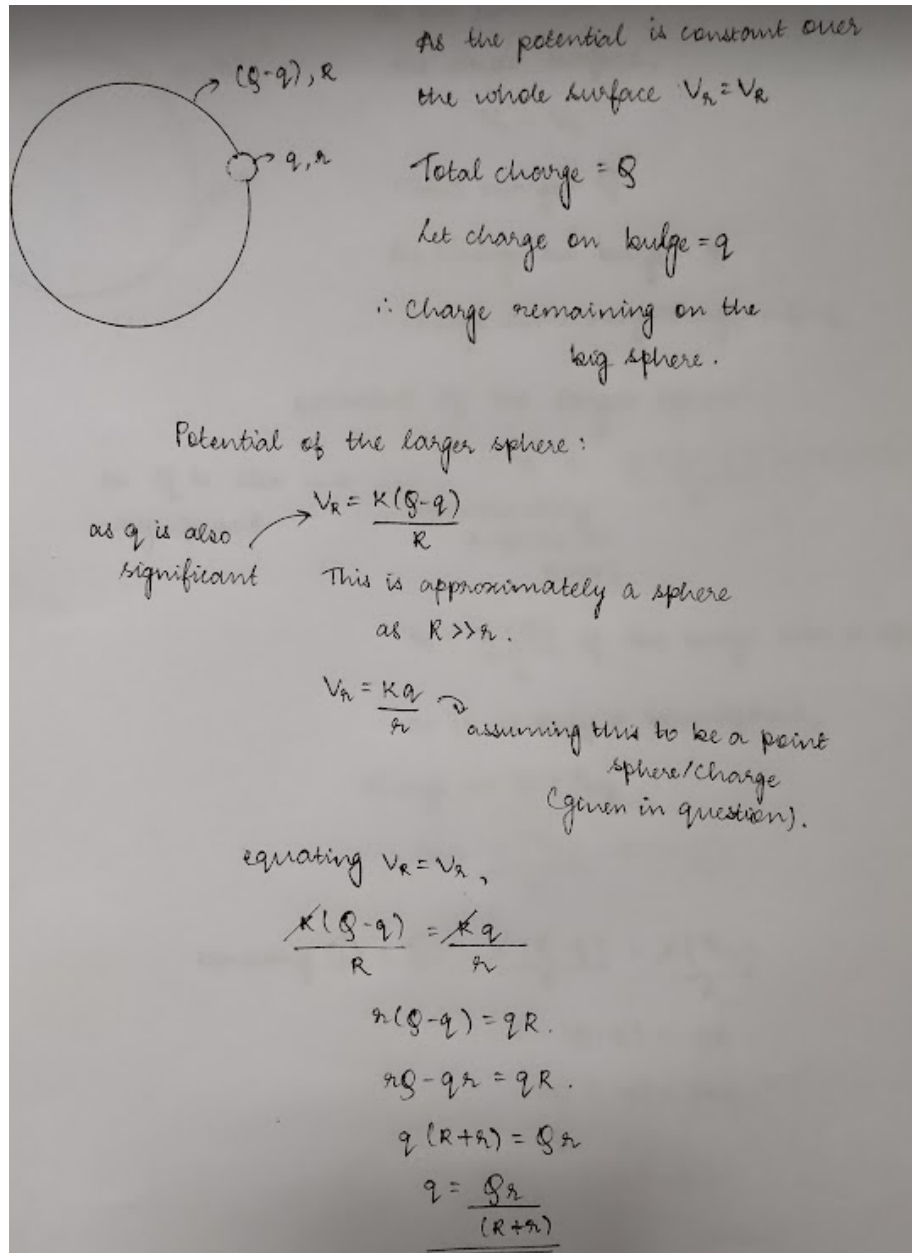 As the potential is constant over
the whole surface Vr = VR
(Q-q), R
q, r
Total charge = Q
Let charge on bulge = q
∴ Charge remaining on the
big sphere.
Potential of the larger sphere:
VR = K(Q-q)/R
as q is also
significant
This is approximately a sphere
as R >> r.
Vr = Kq/r
assuming this to be a point
sphere/charge
(given in question).
equating VR = Vr,
K(Q-q)/R = Kq/r
r(Q-q) = qR.
rQ - qr = qR.
q(R+r) = Qr
q = Qr/(R+r)